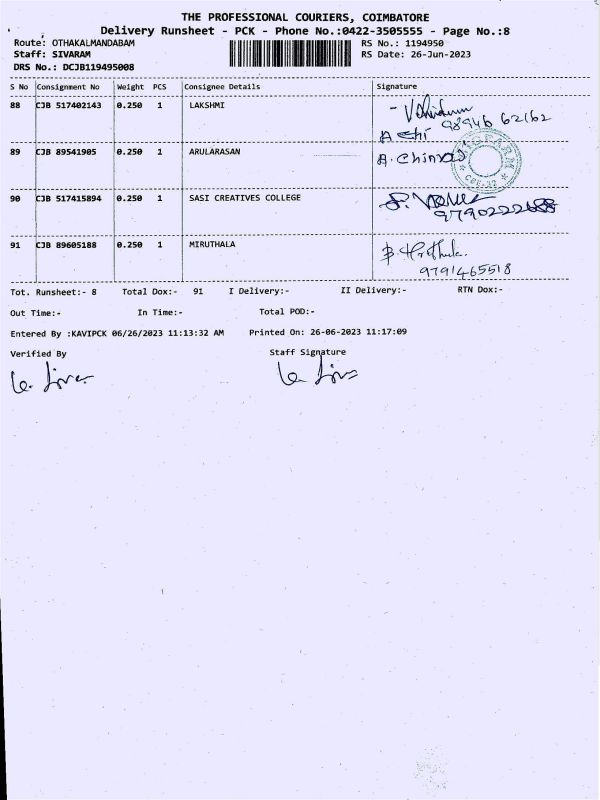 THE PROFESSIONAL COURIERS, COIMBATORE
Delivery Runsheet - PCK - Phone No.:0422-3505555 - Page No.:8
Route: OTHAKALMANDABAM RS No.: 1194950
Staff: SIVARAM RS Date: 26-Jun-2023
DRS No.: DCJB119495008
S No Consignment No Weight PCS Consignee Details Signature
88 CJB 517402143 0.250 1 LAKSHMI
98946 62162
89 CJB 89541905 0.250 1 ARULARASAN
90 CJB 517415894 0.250 1 SASI CREATIVES COLLEGE
91 CJB 89605188 0.250 1 MIRUTHALA
9791465518
Tot. Runsheet:- 8 Total Dox:- 91 I Delivery:- II Delivery:- RTN Dox:-
Out Time:- In Time:- Total POD:-
Entered By :KAVIPCK 06/26/2023 11:13:32 AM Printed On: 26-06-2023 11:17:09
Verified By Staff Signature